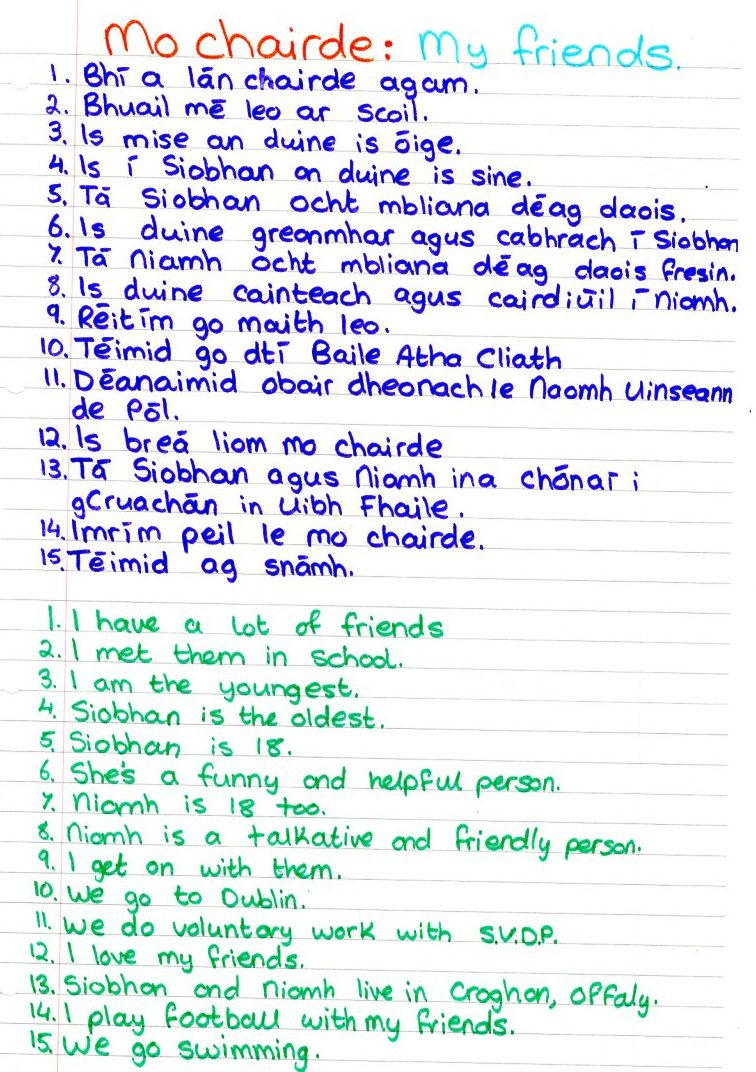 Mo chairde: My friends.
1. Bhí a lán chairde agam.
2. Bhuail mé leo ar scoil.
3. Is mise an duine is óige.
4. Is í Siobhan an duine is sine.
5. Tá Siobhan ocht mbliana déag daois.
6. Is duine greanmhar agus cabhrach í Siobhan
7. Tá Niamh ocht mbliana déag daois fresin.
8. Is duine cainteach agus cairdiúil í Niamh.
9. Réitím go maith leo.
10. Téimid go dtí Baile Atha Cliath
11. Déanaimid obair dheonach le Naomh Uinseann
de Pól.
12. Is breá liom mo chairde
13. Tá Siobhan agus Niamh ina chónaí i
gCruachán in Uibh Fhaile.
14. Imrím peil le mo chairde.
15. Téimid ag snámh.
1. I have a lot of friends
2. I met them in school.
3. I am the youngest.
4. Siobhan is the oldest.
5. Siobhan is 18.
6. She's a funny and helpful person.
7. Niamh is 18 too.
8. Niamh is a talkative and friendly person.
9. I get on with them.
10. We go to Dublin.
11. We do voluntary work with S.V.D.P.
12. I love my friends.
13. Siobhan and Niamh live in Croghan, Offaly.
14. I play football with my friends.
15. We go swimming.